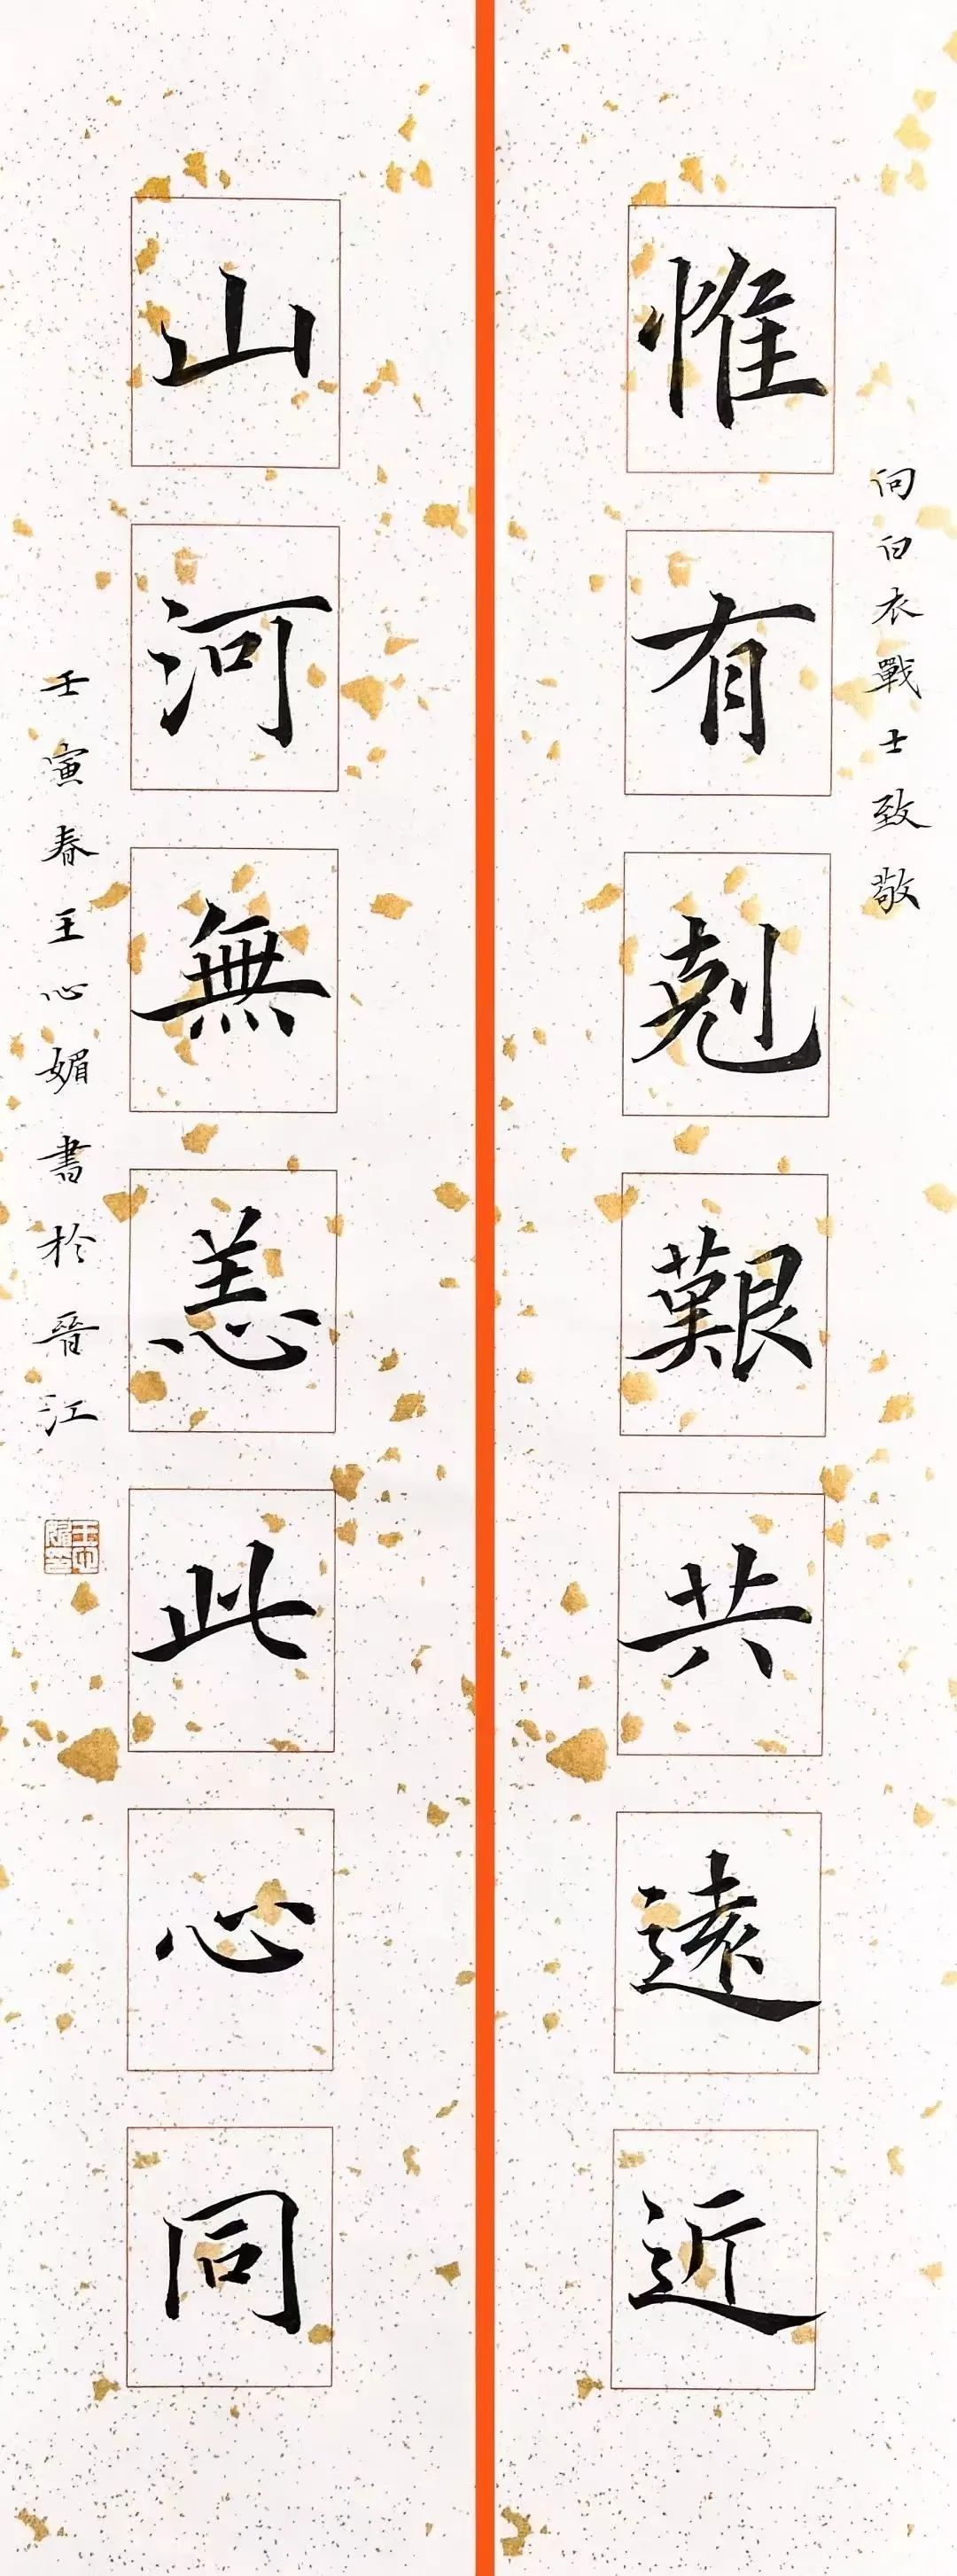 向白衣戰士致敬
惟有剋艱共遠近
山河無恙此心同
壬寅春王心媚書於晉江